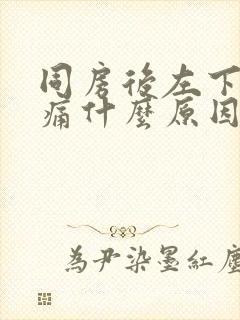 同房後左下
痛什麼原因
為尹染墨紅塵